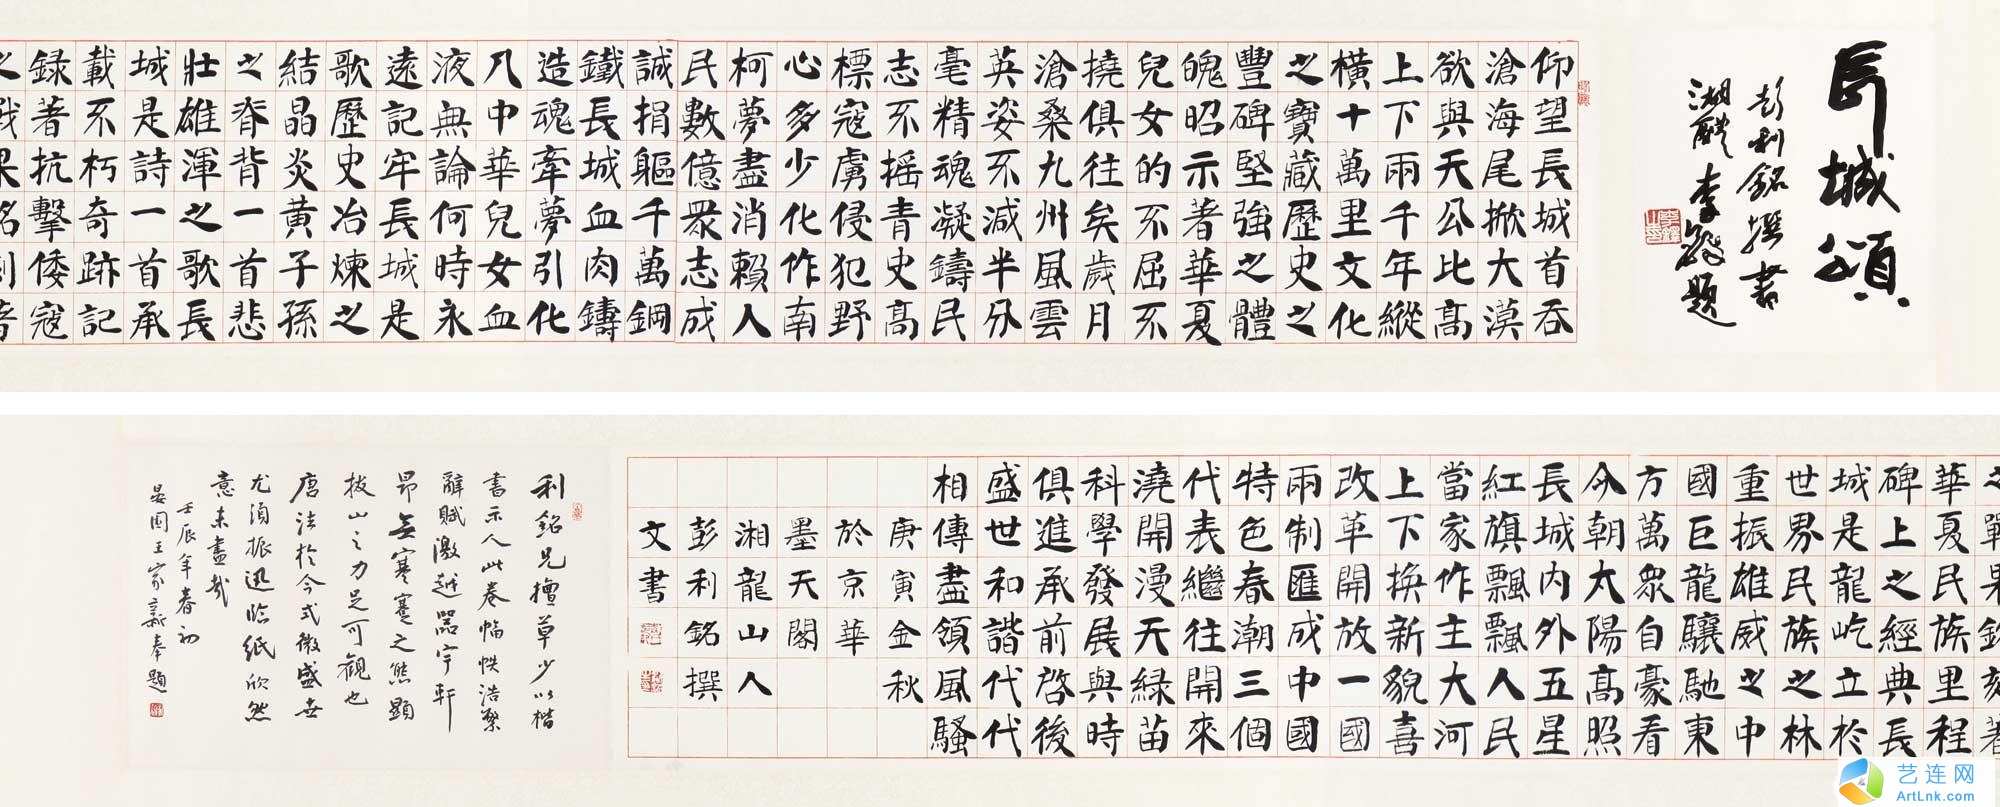 長城頌
彭利銘撰書
湖醴李鐸題
仰望長城首吞
滄海尾掀大漠
欲與天公比高
上下兩千年縱
橫十萬里文化
之寶藏歷史之
豐碑堅強之體
魄昭示著華夏
兒女的不屈不
撓俱往矣歲月
滄桑九州風雲
英姿不減半分
毫精魂凝鑄民
志不摇青史高
標寇虜侵犯野
心多少化作南
柯夢盡消賴人
民數億眾志成
誠捐軀千萬鋼
鐵長城血肉鑄
造魂牽夢引化
入中華兒女血
液無論何時永
遠記牢長城是
歌歷史冶煉之
結晶炎黃子孫
之脊背一首悲
壯雄渾之歌長
城是詩一首承
載不朽奇跡記
録著抗擊倭寇
之戰果銘刻著
華夏民族里程
碑上之經典長
城是龍屹立於
世界民族之林
重振雄威之中
國巨龍驤馳東
方萬眾自豪看
今朝太陽高照
長城内外五星
紅旗飄飄人民
當家作主大河
上下换新貌喜
改革開放一國
兩制匯成中國
特色春潮三個
代表繼往開來
澆開漫天緑苗
科學發展與時
俱進承前啓後
盛世和諧代代
相傳盡領風騷
庚寅金秋
於京華
墨天閣
湘龍山人
彭利銘撰
文書
利銘兄擅草少以楷
書示人此卷幅帙浩繁
辭賦激越器宇軒
昂無寒蹇之態顯
拔山之力足可觀也
唐法於今式微盛世
尤須振迅臨紙欣然
意未盡哉
壬辰年春初
晏園王家新奉題
艺连网
ArtLnk.com